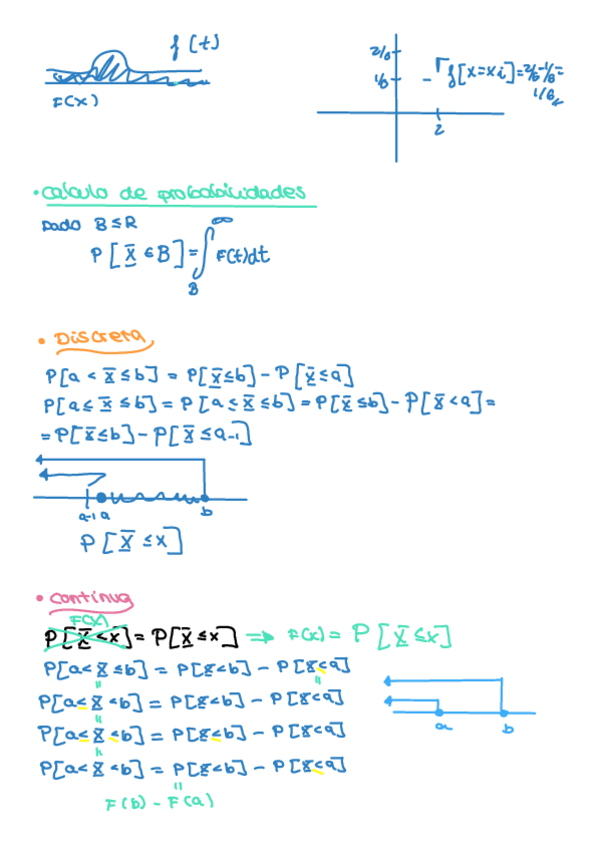 f(t)
F(x)
2/6
1/6
f[x=xi]=2/6-1/6=
1/6
2
• Calculo de probabilidades
Dado B ≤ R
P[X ∈ B] = ∫ F(t)dt
∞
B
• Discrera
P[a < X ≤ b] = P[X ≤ b] - P[X ≤ a]
P[a ≤ X ≤ b] = P[a ≤ X ≤ b] = P[X ≤ b] - P[X < a] =
= P[X ≤ b] - P[X ≤ a-1]
a-1 a b
P[X ≤ x]
• Continua
F(x)
P[X < x] = P[X ≤ x] ⇒ F(x) = P[X ≤ x]
P[a < X ≤ b] = P[X < b] - P[X < a]
" "
P[a ≤ X < b] = P[X < b] - P[X < a]
"
P[a ≤ X ≤ b] = P[X ≤ b] - P[X < a]
"
P[a < X < b] = P[X < b] - P[X ≤ a]
"
F(b) - F(a)
a b